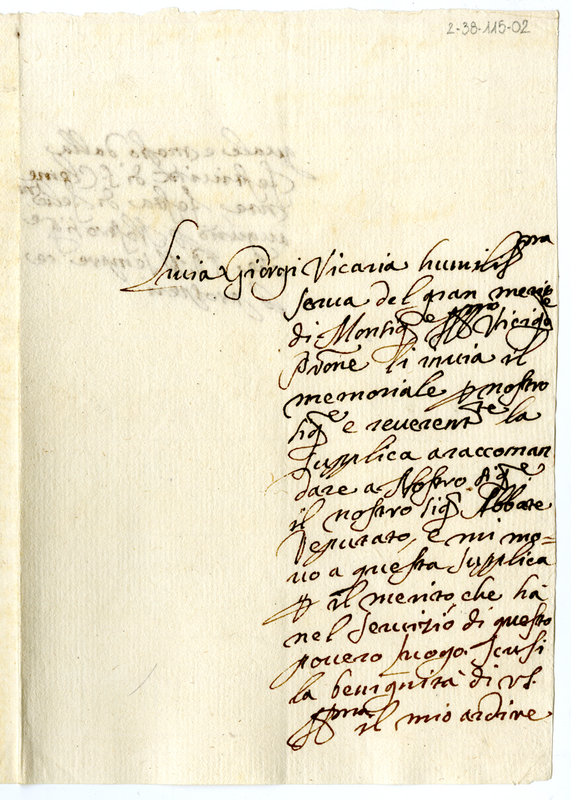 2-38-115-02
Livia Giorgi Vicaria humiliss.ma
serva del gran merito
di Monsig.re Ill.mo Viceg.te
Prone li invia il
memoriale p nostro
Sig.re e reverent.te la
supplica a raccoman
dare a Nostro Sig.re
il nostro Sig.r Abbate
Deputato, e mi mo=
vo a questa supplica
p il merito, che hà
nel servizio di questo
povero luogo. Scusi
la benignità di VS.
Ill.ma il mio ardire